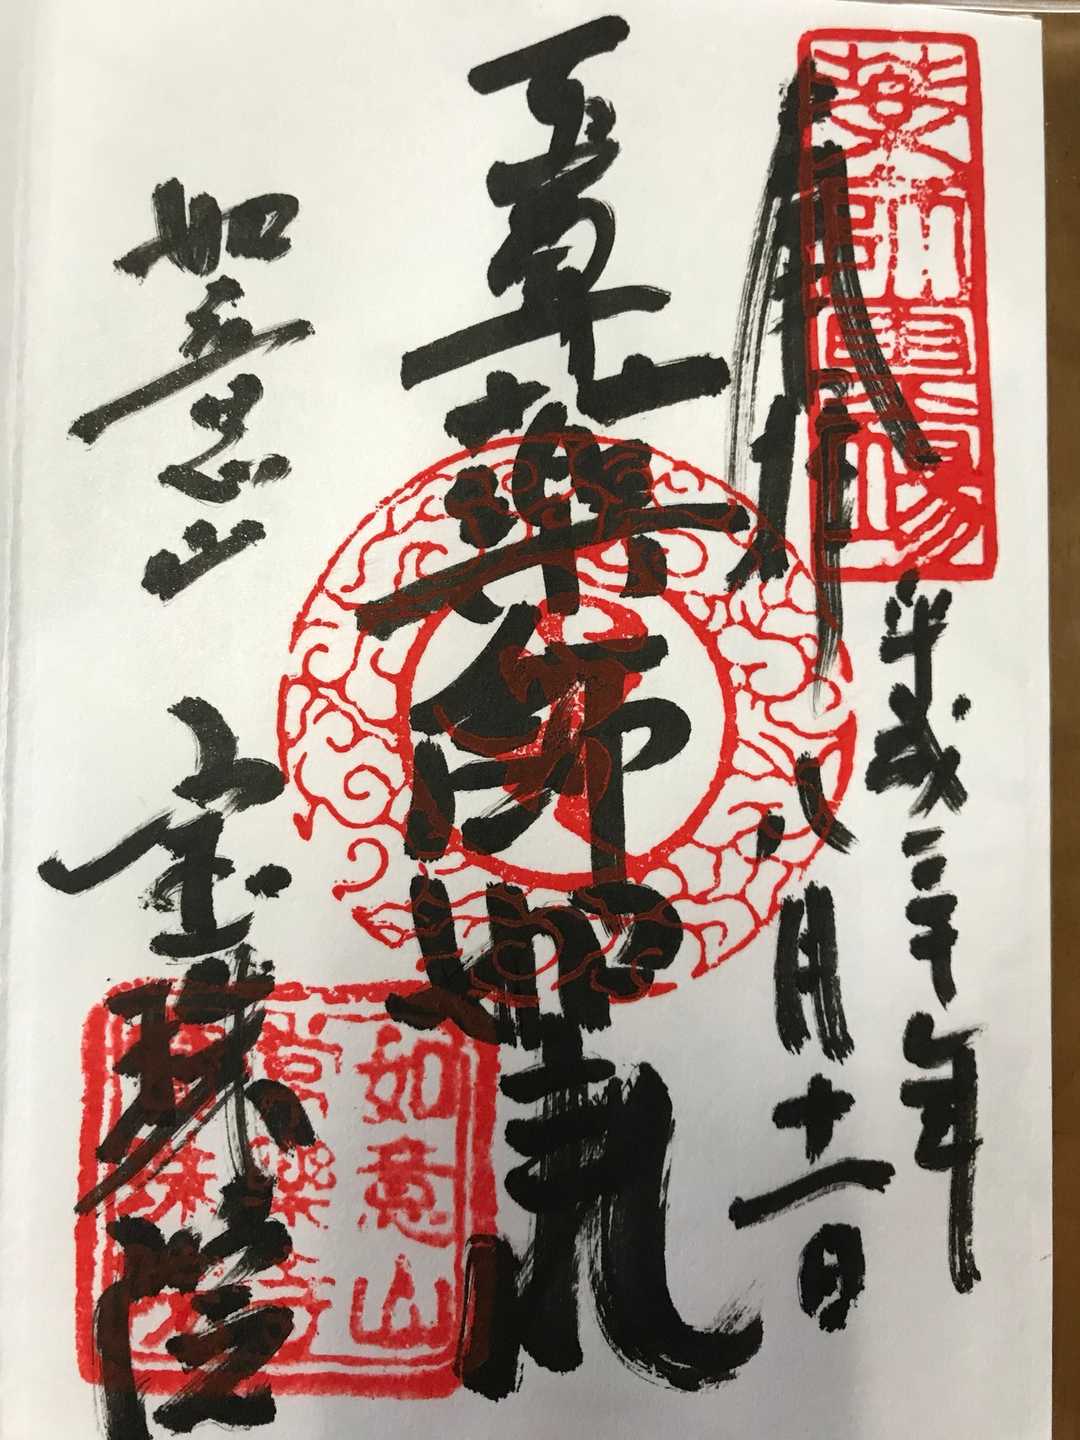 薬師霊場
奉拝
平成三十年
八月十一日
薬師如来
如意山
宝珠院
如意山
常樂寺